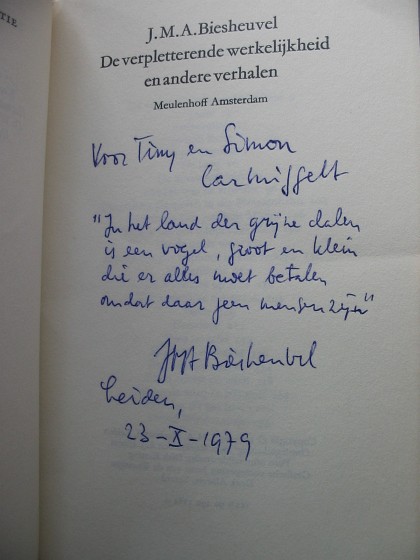 TIE
J.M.A.Biesheuvel
De verpletterende werkelijkheid
en andere verhalen
Meulenhoff Amsterdam
Voor Tiny en Simon
Carmiggelt
"In het land der grijze dalen
is een vogel, groot en klein
die er alles moet betalen
omdat daar geen mensen zijn"
Biesheuvel
Leiden,
23-X-1979